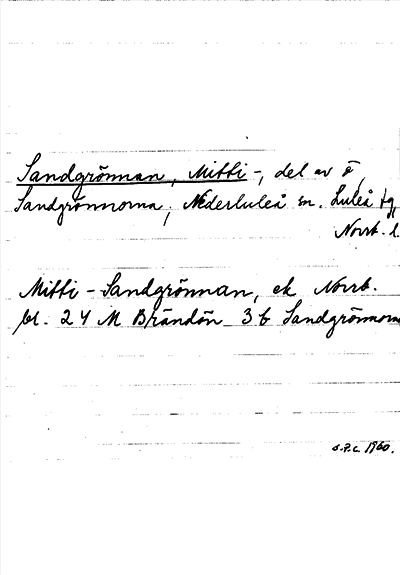 Sandgrönnan, Mitti-, del av ö,
Sandgrönnorna, Nederluleå sn. Luleå tg,
Norrb. l.
Mitti-Sandgrönnan, ek Norrb.
bl. 24 M Brändön 3b Sandgrönnorna
O.P.C. 1960.